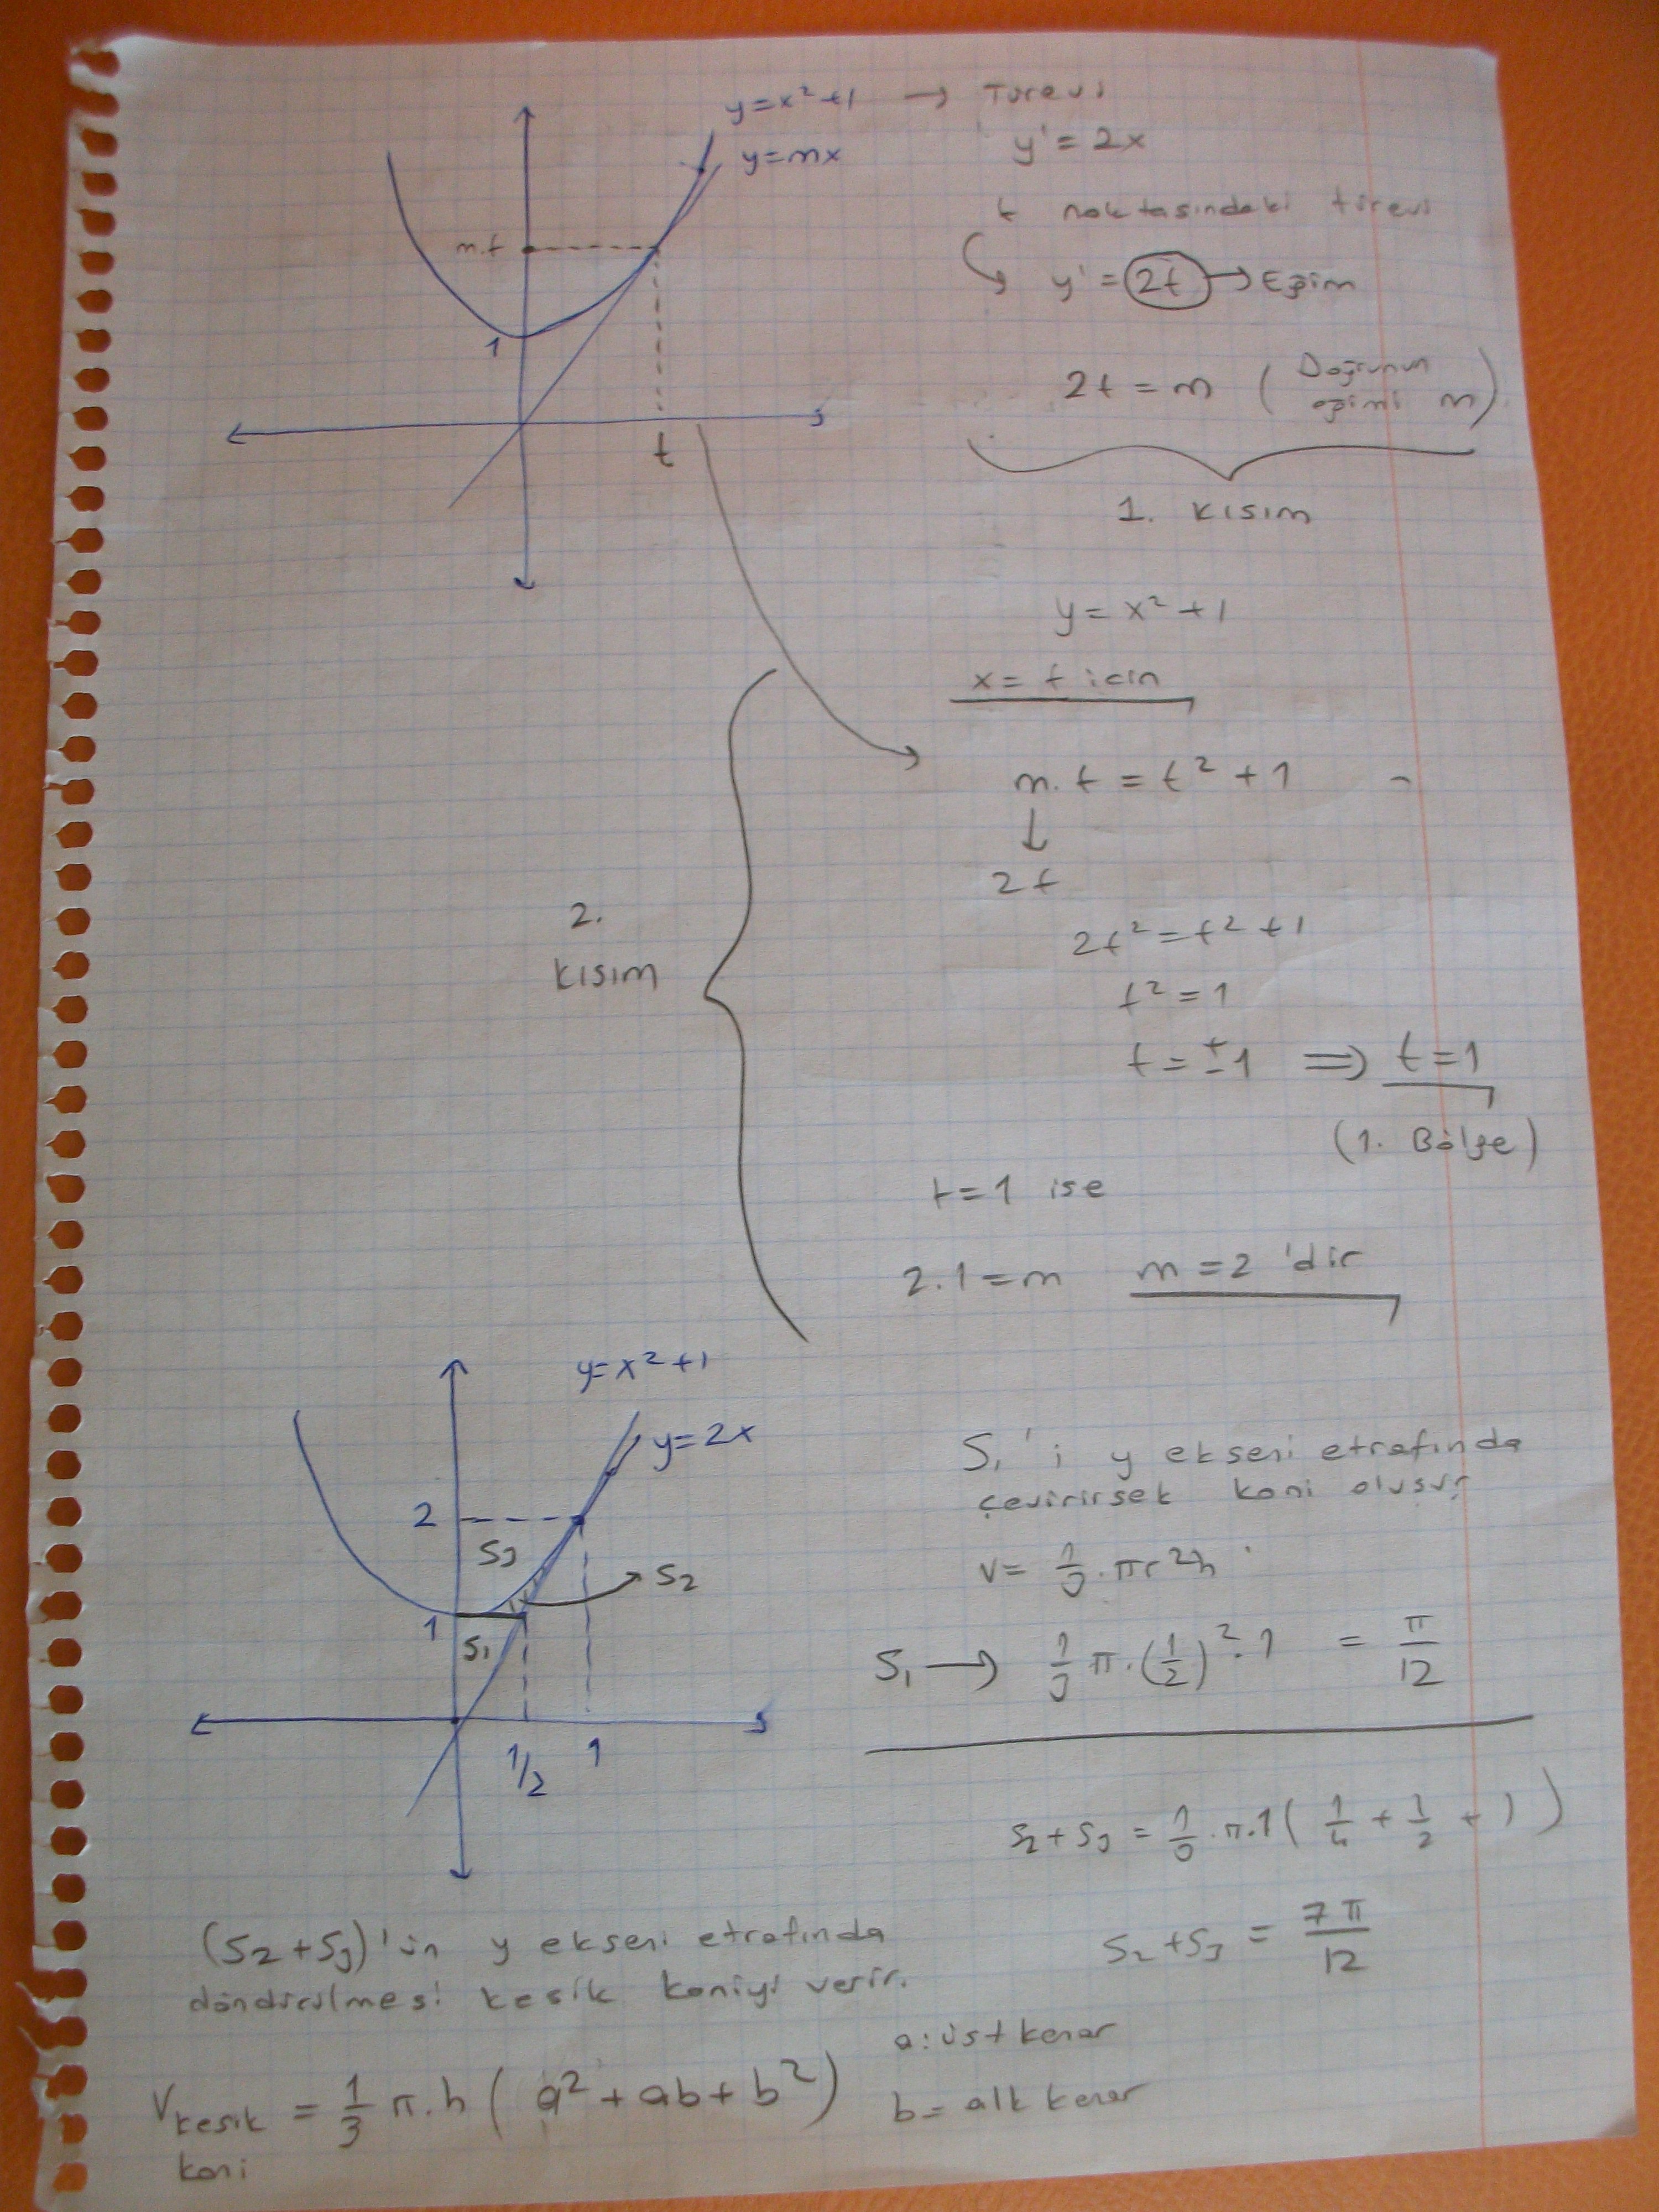 y=x²+1 → Türevi
y=mx
y'=2x
t noktasındaki türevi
m.t
y'=2t → Eğim
1
2t=m (Doğrunun
eğimi m)
t
1. KISIM
y=x²+1
x=t icin
m.t=t²+1
↓
2t
2.
KISIM
2t²=t²+1
t²=1
t=±1 ⇒ t=1
(1. Bölge)
t=1 ise
2.1=m m=2'dir
y=x²+1
y=2x
2
S3
S2
1
S1
1/2 1
S1'i y ekseni etrafında
çevirirsek koni oluşur
V=1/3.πr²h
S1 → 1/3 π.(1/2)².1 = π/12
S2+S3=1/3.π.1(1/4+1/2+1)
S2+S3=7π/12
(S2+S3)'ün y ekseni etrafında
döndürülmesi kesik koniyi verir.
a: üst kenar
V kesik koni = 1/3 π.h (a²+ab+b²)
b= alt kenar